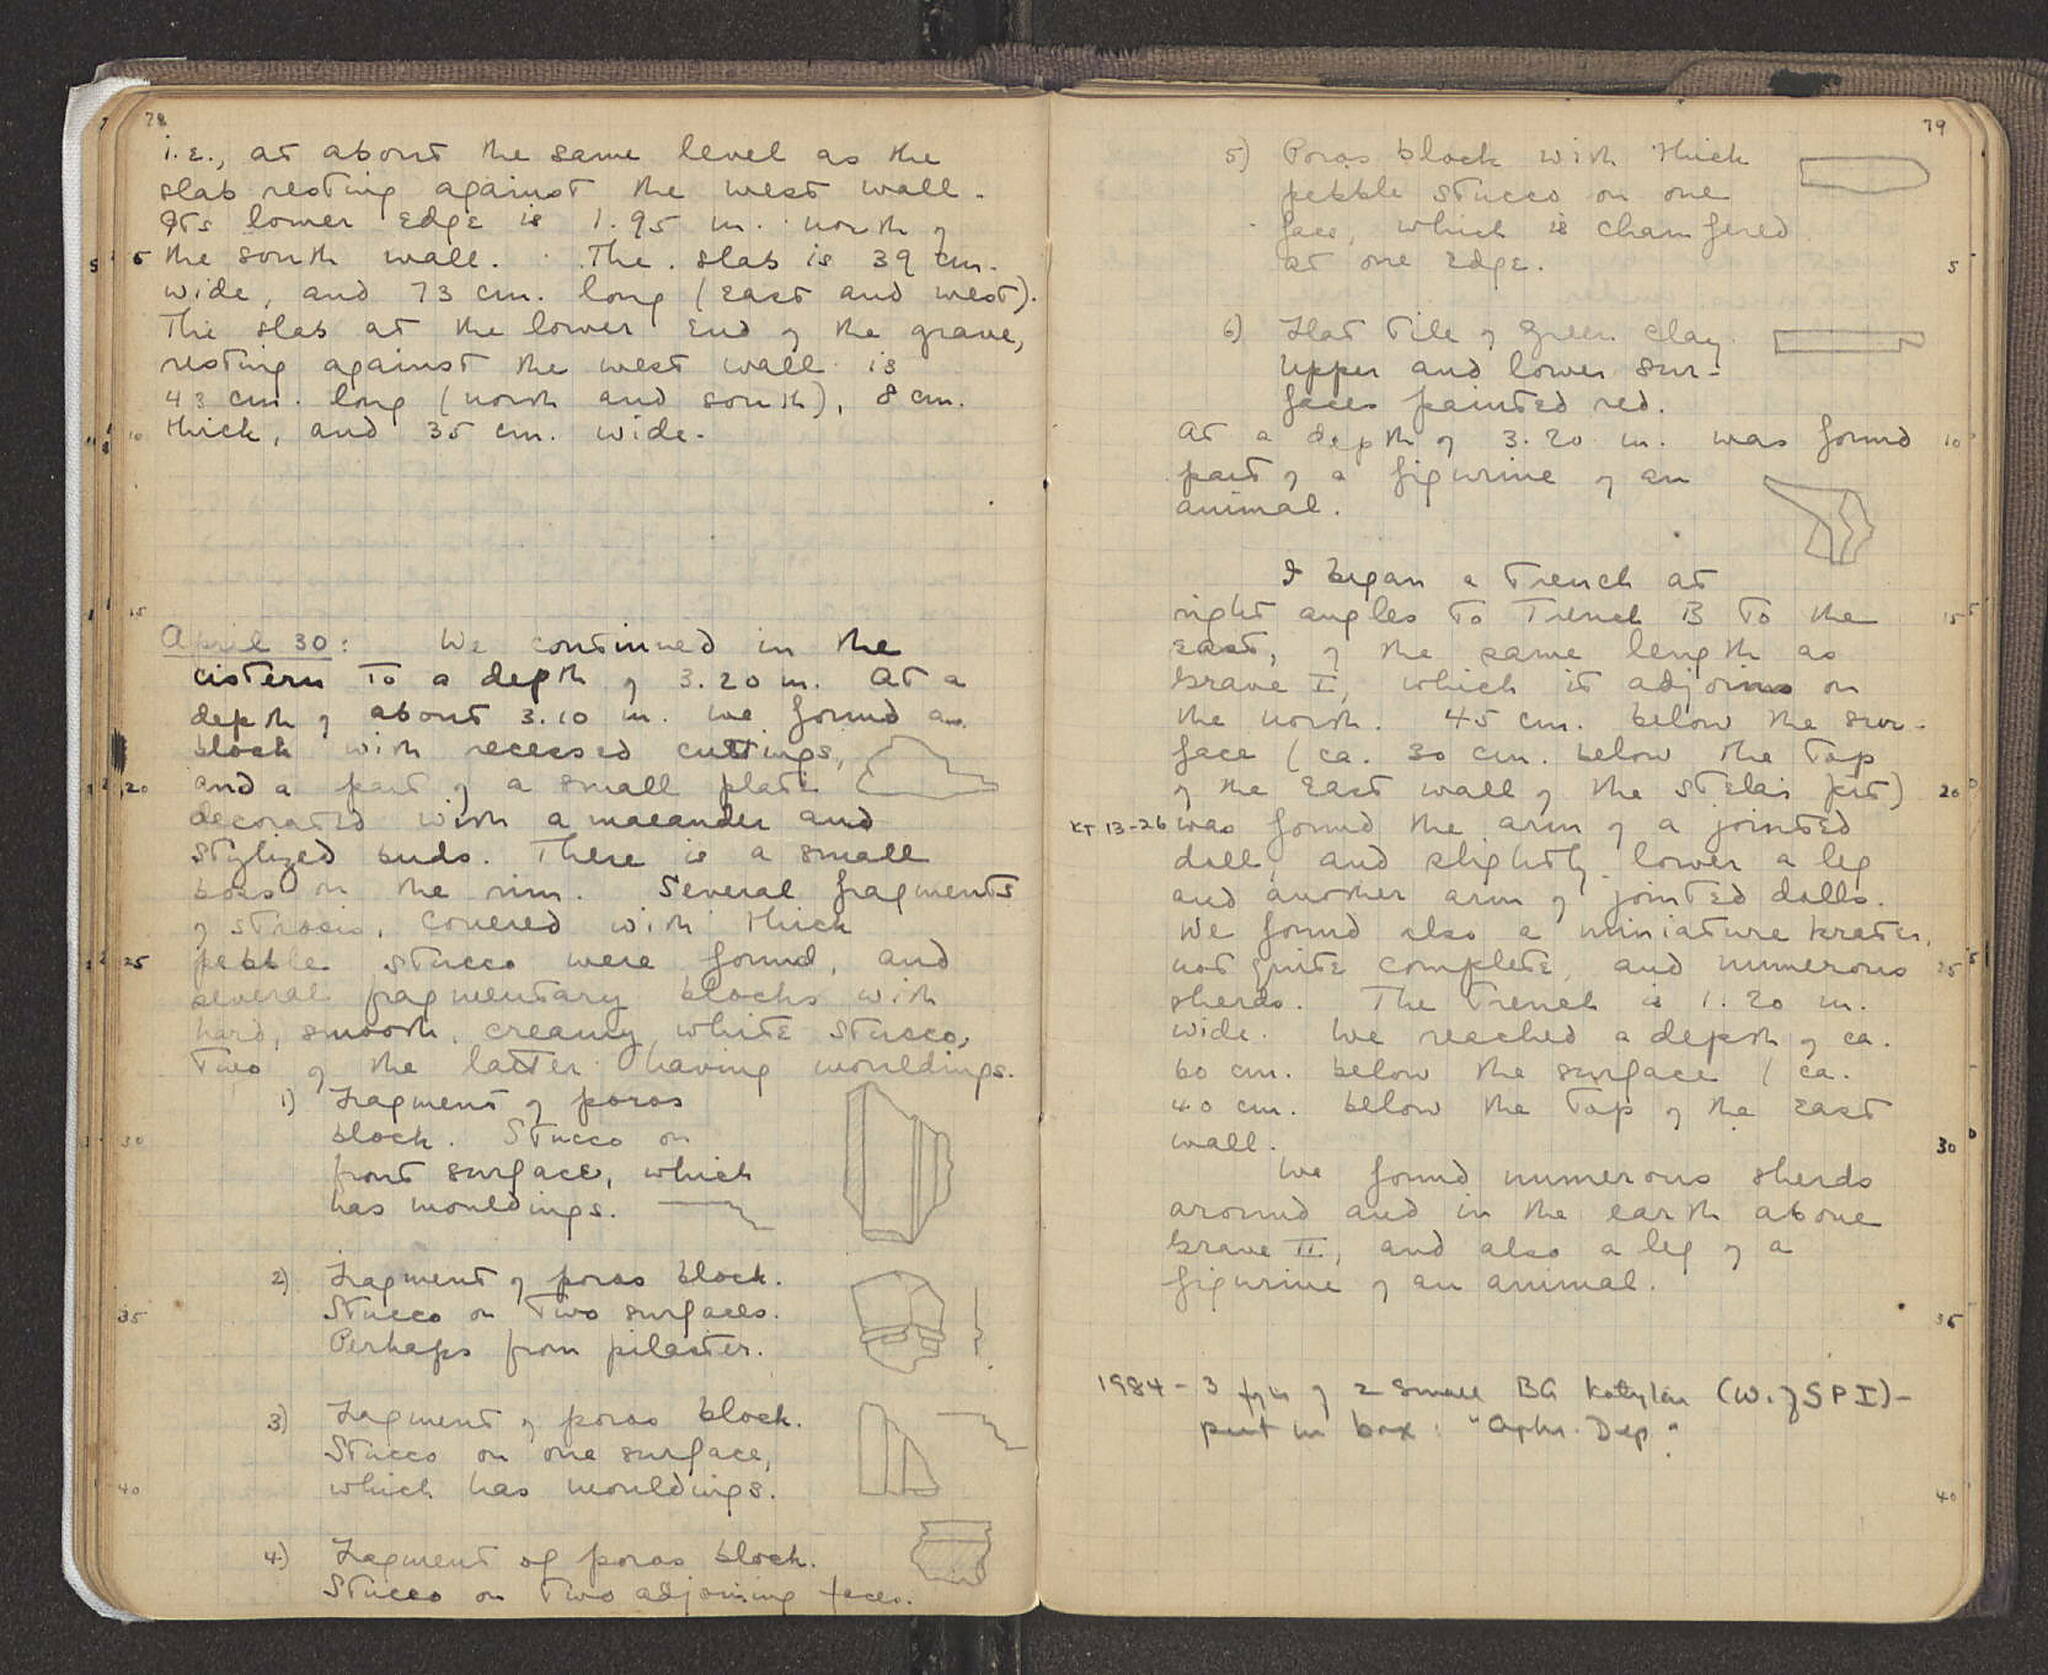 78
i.e., at about the same level as the
slab resting against the west wall.
Its lower edge is 1.95 m. north of
5 the south wall. The slab is 39 cm.
wide, and 73 cm. long (east and west).
The slab at the lower end of the grave,
resting against the west wall is
43 cm. long (north and south), 8 cm.
10 thick, and 35 cm. wide.
15
April 30: We continued in the
cistern to a depth of 3.20 m. At a
depth of about 3.10 m. we found a
block with recessed cuttings,
20 and a part of a small plate
decorated with a maeander and
stylized buds. There is a small
boss on the rim. Several fragments
of strosis, covered with thick
25 pebble stucco were found, and
several fragmentary blocks with
hard, smooth, creamy white stucco,
two of the latter having mouldings.
1) Fragment of poros
30 block. Stucco on
front surface, which
has mouldings.
2) Fragment of poros block.
35 Stucco on two surfaces.
Perhaps from pilaster.
3) Fragment of poros block.
Stucco on one surface,
40 which has mouldings.
4) Fragment of poros block.
Stucco on two adjoining faces.
79
5) Poros block with thick
pebble stucco on one
face, which is chamfered
at one edge. 5
6) Flat tile of green clay
upper and lower sur-
faces painted red.
At a depth of 3.20 m. was found 10
part of a figurine of an
animal.
I began a trench at
right angles to Trench B to the 15
east, of the same length as
Grave I, which it adjoins on
the north. 45 cm. below the sur-
face (ca. 30 cm. below the top
of the east wall of the stelai pit) 20
KT 13-26 was found the arm of a jointed
doll, and slightly lower a leg
and another arm of jointed dolls.
We found also a miniature krater,
not quite complete, and numerous 25
sherds. The trench is 1.20 m.
wide. We reached a depth of ca.
60 cm. below the surface (ca.
40 cm. below the top of the east
wall. 30
We found numerous sherds
around and in the earth above
Grave II, and also a leg of a
figurine of an animal.
35
1984 - 3 of 2 small BG (W. of SP I) -
put in box: "Aphr. Dep."
40